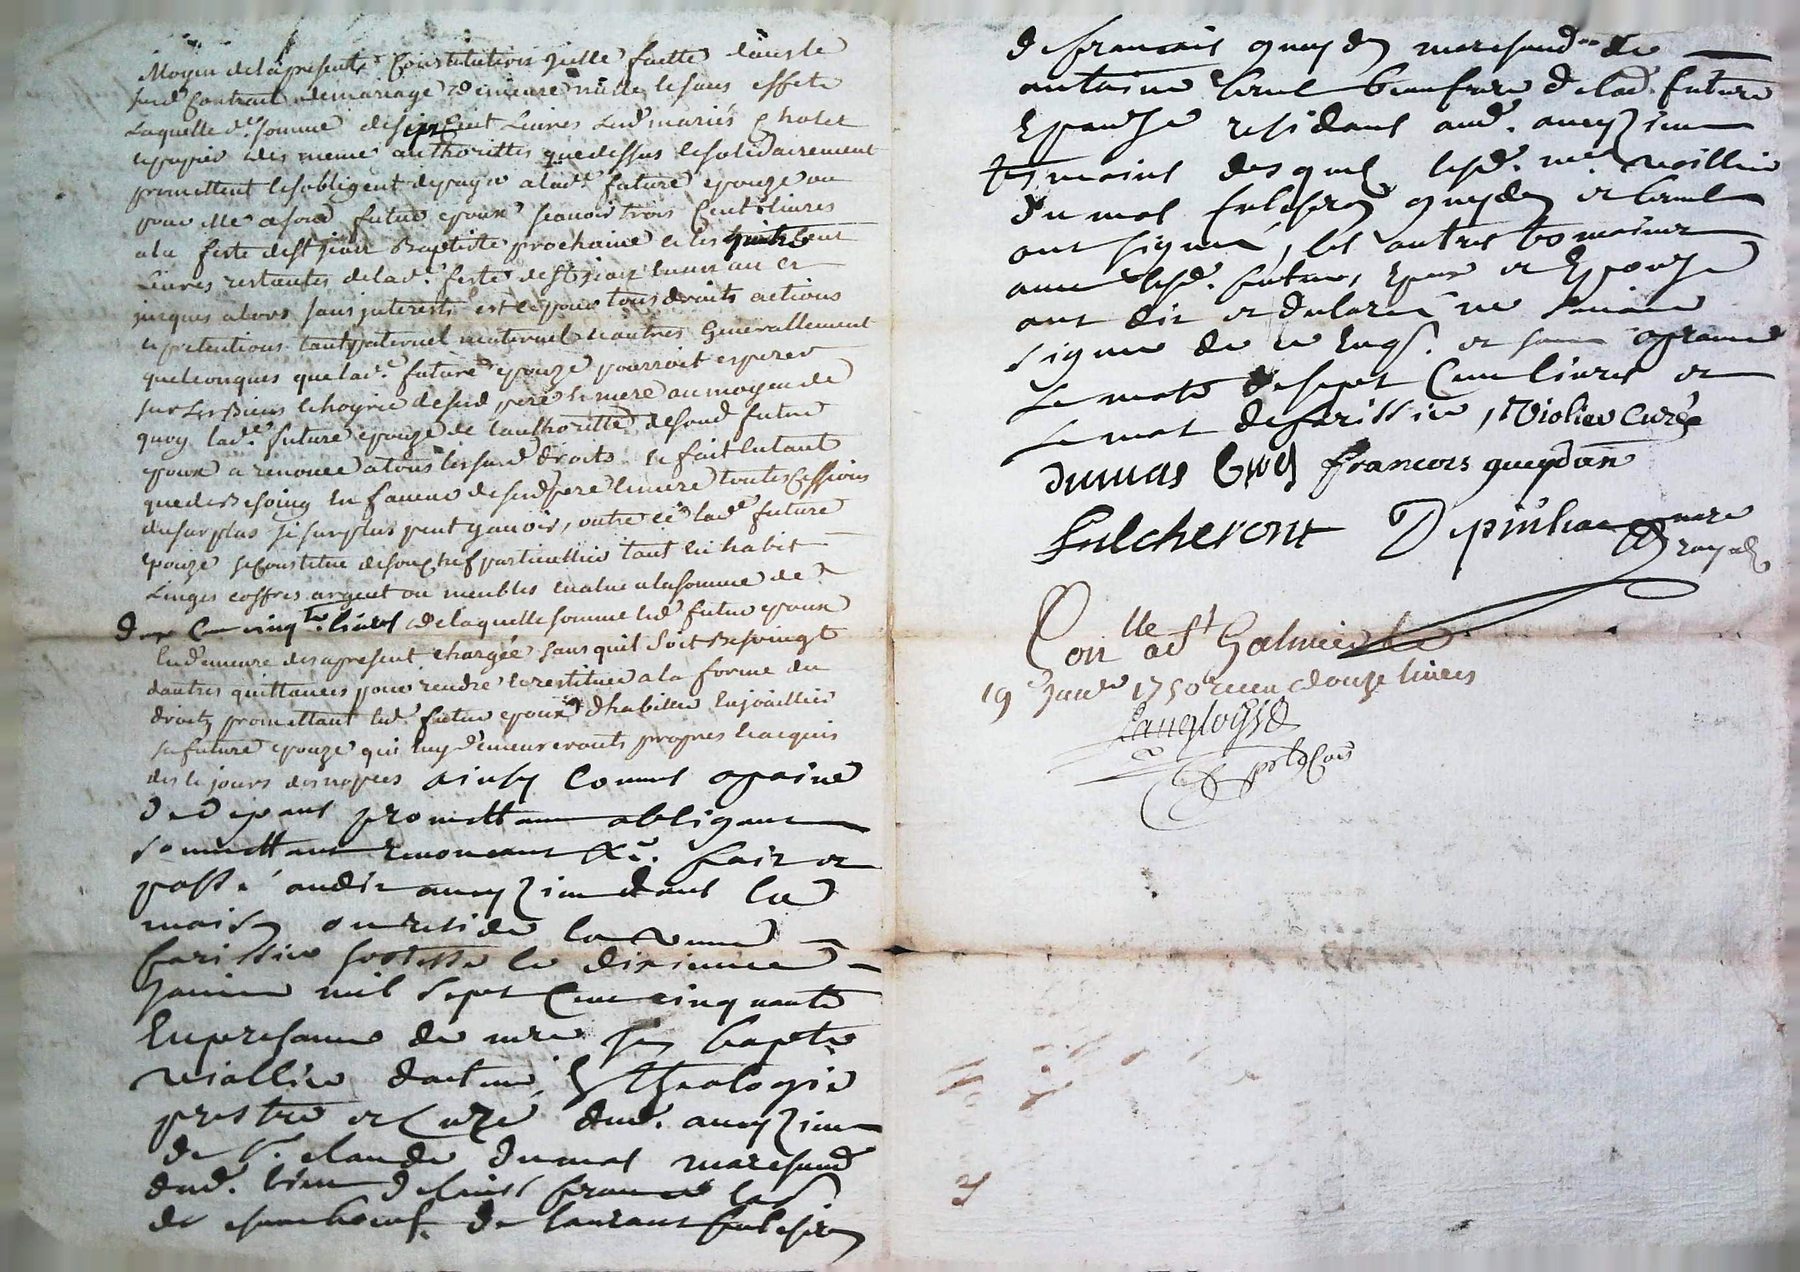 Moyen delapresente Constitution quelle faitte dans le
susd Contrait demariage demeure nulle et sans effets
Laquelle de. somme desept Cent Livres Led mariés Cholet
et des meme authorittés quedessus et solidairement
promettent et sobligent depayer alad. future epouze ou
pour elle asond futur epoux scavoir trois Cent Livres
ala feste de st jean Baptiste prochaine et les quatre Cent
Livres restantes delad. feste de st jean en un an et
jusques alors sans interests et ce pour tous droits actions
et pretentions tant paternel maternel et autres Generallement
quelconques que lad. future epouze pourroit esperer
sur Les Biens et hoyrie desesd pere et mere au moyen de
quoy lad. future epouze de lauthoritté desond futur
epoux a renoncé atous lesusd droits et fait en tant
que de Besoing en faveur desesd pere et mere toutes Cessions
du surplus si surplus peut y avoir, outre ce lad. future
epouze se Constitue de son chef particullier tant en habit
Linges coffres argent ou meubles evalué ala somme de
deux Cent cinqte. livres de laquelle somme led futur epoux
En demeure des apresent chargée sans quil soit Besoingt
dautres quittances pour rendre et restituer a la forme du
droit promettant led. futur epoux dhabiller et enjoailler
sa future epouze qui luy demeureronts propres et acquis
des le jours des nopces ainsy Comme apaine
de depans promettant obligeant
soumettant renonceant &c. fait et
passé audit aveyzieu dans la
maison ou reside la veuve
farissier hotesse le dixieme
Janvier mil sept Cent cinquante
En presance de mre Jean bapte
violier docteur En theologie
prestre et Curé dud. aveyzieu
de Sr. claude dumas marchand
dud. lieu de
de de laurant fulchiron
de francois queydan marchand de
antoine brul beaufrere de lad. future
Epouse residant aud. aveyzieu
tesmoins desquels lesd. mre violier
dumas fulchiron queydan et brul
ont signé, les autres tesmoins
avec lesd. futurs Epoux et Epouse
ont dit et declaré ne scavoir
signer de ce Enqs. et sous aprouvé
Le mots desept Cent livres et
Le mot de farissier, Violier Curé
dumas brul francois queydan
fulcheront Depinhac nore
royal
Contlle a St Galmier le
19e Janvr 1750 receu douze livres
Langlois